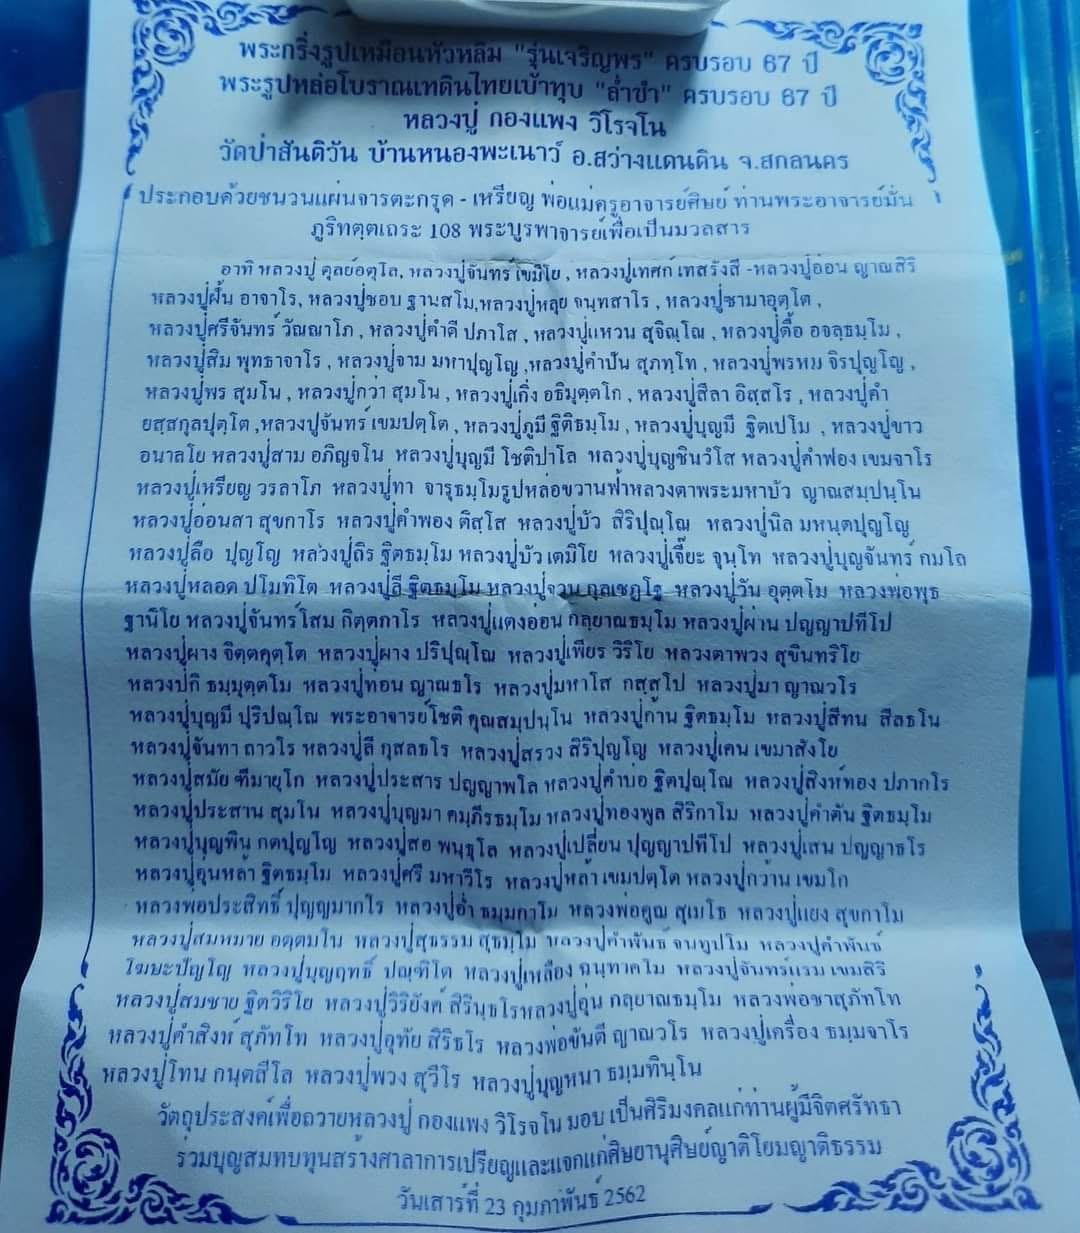 พระกริ่งรูปเหมือนหัวหลิม "รุ่นเจริญพร" ครบรอบ 67 ปี
พระรูปหล่อโบราณเทดินไทยเบ้าทุบ "ล่ำซำ" ครบรอบ 67 ปี
หลวงปู่ กองแพง วิโรจโน
วัดป่าสันติวัน บ้านหนองพะเนาว์ อ.สว่างแดนดิน จ.สกลนคร
ประกอบด้วยชนวนแผ่นจารตะกรุด - เหรียญ พ่อแม่ครูอาจารย์ศิษย์ ท่านพระอาจารย์มั่น
ภูริทตฺตเถระ 108 พระบูรพาจารย์เพื่อเป็นมวลสาร
อาทิ หลวงปู่ ดุลย์อตุโล, หลวงปู่จันทร์ เขมิโย , หลวงปู่เทศก์ เทสรังสี -หลวงปู่อ่อน ญาณสิริ
หลวงปู่ฝั้น อาจาโร, หลวงปู่ชอบ ฐานสโม,หลวงปู่หลุย จนฺทสาโร , หลวงปู่ซามาอุตฺโต ,
หลวงปู่ศรีจันทร์ วัณณาโภ , หลวงปู่คำดี ปภาโส , หลวงปู่แหวน สุจิณฺโณ , หลวงปู่ตื้อ อจลฺธมฺโม ,
หลวงปู่สิม พุทธาจาโร , หลวงปู่จาม มหาปุญโญ ,หลวงปู่คำปัน สุภทฺโท , หลวงปู่พรหม จิรปุญฺโญ ,
หลวงปู่พร สุมโน , หลวงปู่กว่า สุมโน , หลวงปู่เกิ่ง อธิมุตฺตโก , หลวงปู่สีลา อิสฺสโร , หลวงปู่คำ
ยสฺสกุลปุตฺโต ,หลวงปู่จันทร์ เขมปตฺโต , หลวงปู่ภูมี ฐิติธมฺโม , หลวงปู่บุญมี ฐิตเปโม , หลวงปู่ขาว
อนาลโย หลวงปู่สาม อภิญจโน หลวงปู่บุญมี โชติปาโล หลวงปู่บุญชินวํโส หลวงปู่คำฟอง เขมจาโร
หลวงปู่เหรียญ วรลาโภ หลวงปู่ทา จารุธมฺโมรูปหล่อขวานฟ้าหลวงตาพระมหาบัว ญาณสมฺปนฺโน
หลวงปู่อ่อนสา สุขกาโร หลวงปู่คำพอง ติสฺโส หลวงปู่บัว สิริปุณฺโณ หลวงปู่นิล มหนฺตปุญฺโญ
หลวงปู่ลือ ปุญโญ หลวงปู่ถิร ฐิตธมฺโม หลวงปู่บัว เตมิโย หลวงปู่เจี๊ยะ จุนฺโท หลวงปู่บุญจันทร์ กมโล
หลวงปู่หลอด ปโมทิโต หลวงปู่ลี ฐิตธมฺโม หลวงปู่จวน กุลเชฏโฐ หลวงปู่วัน อุตฺตโม หลวงพ่อพุธ
ฐานิโย หลวงปู่จันทร์โสม กิตฺตกาโร หลวงปู่แตงอ่อน กลฺยาณธมฺโม หลวงปู่ผ่าน ปญญาปทีโป
หลวงปู่ผาง จิตฺตคุตฺโต หลวงปู่ผาง ปริปุณฺโณ หลวงปู่เพียร วิริโย หลวงตาพวง สุขินทริโย
หลวงปู่กิ ธมฺมุตฺตโม หลวงปู่ท่อน ญาณธโร หลวงปู่มหาโส กสฺสโป หลวงปู่มา ญาณวโร
หลวงปู่บุญมี ปริปุณฺโณ พระอาจารย์โชติ คุณสมฺปนฺโน หลวงปู่ก้าน ฐิตธมฺโม หลวงปู่สีทน สีลธโน
หลวงปู่จันทา ถาวโร หลวงปู่ลี กุสลธโร หลวงปู่สรวง สิริปุญโญ หลวงปู่เคน เขมาสังโย
หลวงปู่สมัย ฑีมายุโก หลวงปู่ประสาร ปญญาพโล หลวงปู่คำบอ ฐิตปุณฺโณ หลวงปู่สิงห์ทอง ปภากโร
หลวงปู่ประสาน สุมโน หลวงปู่บุญมา คมฺภีรธมฺโม หลวงปู่ทองพูล สิริกาโม หลวงปู่คำตัน ฐิตธมฺโม
หลวงปู่บุญพิน กตปุญโญ หลวงปู่สอ พนฺธุโล หลวงปู่เปลี่ยน ปัญญาปทีโป หลวงปู่เสน ปญญาธโร
หลวงปู่อุ่นหล้า ฐิตธมฺโม หลวงปู่ศรี มหาวีโร หลวงปู่หล้า เขมปตฺโต หลวงปู่กว้าน เขมโก
หลวงพ่อประสิทธิ์ ปุญญมากโร หลวงปู่อ่ำ ธมฺมกาโม หลวงพ่อคูณ สุเมโธ หลวงปู่แยง สุขกาโม
หลวงปู่สมหมาย อตฺตมโน หลวงปู่สุธรรม สุธมฺโม หลวงปู่คำพันธ์ จนทูปโม หลวงปู่คำพันธ์
โฆษะปัญโญ หลวงปู่บุญฤทธิ์ ปณฺฑิโต หลวงปู่เหลือง ฉนฺทาคโม หลวงปู่จันทร์แรม เขมสิริ
หลวงปู่สมชาย ฐิตวิริโย หลวงปู่วิริยังค์ สิรินฺธโรหลวงปู่อุ่น กลฺยาณธมฺโม หลวงพ่อชาสุภัทโท
หลวงปู่คำสิงห์ สุภัทโท หลวงปู่อุทัย สิริธโร หลวงพ่อขันตี ญาณวโร หลวงปู่เครื่อง ธมฺมจาโร
หลวงปู่โทน กนฺตสีโล หลวงปู่พวง สุวีโร หลวงปู่บุญหนา ธมฺมทินฺโน
วัตถุประสงค์เพื่อถวายหลวงปู่ กองแพง วิโรจโน มอบ เป็นศิริมงคลแก่ท่านผู้มีจิตศรัทธา
ร่วมบุญสมทบทุนสร้างศาลาการเปรียญและแจกแก่ศิษยานุศิษย์ญาติโยมญาติธรรม
วันเสาร์ที่ 23 กุมภาพันธ์ 2562